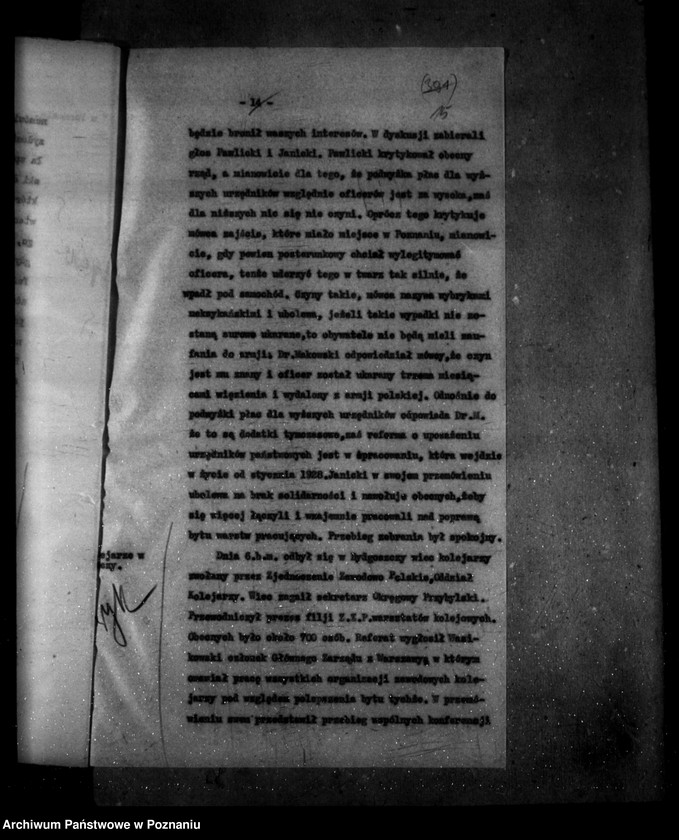 (304)
- 14 -
15
będzie bronił waszych interesów. W dyskusji zabierali
głos Pawlicki i Janicki. Pawlicki krytykował obecny
rząd, a mianowicie dla tego, że podwyżka płac dla wyż-
szych urzędników względnie oficerów jest za wysoka, zaś
dla niższych nic się nie czyni. Oprócz tego krytykuje
mówca zajście, które miało miejsce w Poznaniu, mianowi-
cie, gdy pewien posterunkowy chciał wylegitymować
oficera, tenże uderzył tego w twarz tak silnie, że
wpadł pod samochód. Czyny takie, mówca nazywa wybrykami
meksykańskimi i ubolewa, jeżeli takie wypadki nie zo-
staną surowo ukarane, to obywatele nie będą mieli zau-
fania do armji. Dr. Makowski odpowiedział mówcy, że czyn
jest mu znany i oficer został ukarany trzema miesią-
cami więzienia i wydalony z armji polskiej. Odnośnie do
podwyżki płac dla wyższych urzędników odpowiada Dr. M.
że to są dodatki tymczasowe, zaś reforma o uposażeniu
urzędników państwowych jest w opracowaniu, która wejdzie
w życie od stycznia 1928. Janicki w swojem przemówieniu
ubolewa na brak solidarności i nawołuje obecnych, żeby
się więcej łączyli i wzajemnie pracowali nad poprawą
bytu warstw pracujących. Przebieg zebrania był spokojny.
ejarze w
czy.
Dnia 6.b.m. odbył się w Bydgoszczy wiec kolejarzy
zwołany przez Zjednoczenie Zawodowe Polskie, Oddział
Kolejarzy. Wiec zagaił sekretarz Okręgowy Przybylski.
Przewodniczył prezes filji Z.Z.P. warsztatów kolejowych.
Obecnych było około 700 osób. Referat wygłosił
kowski członek Głównego Zarządu z Warszawy, w którym
omawiał pracę wszystkich organizacji zawodowych kole-
jarzy pod względem polepszenia bytu tychże. W przemó-
wieniu swem przedstawił przebieg wspólnych konferencji
Archiwum Państwowe w Poznaniu